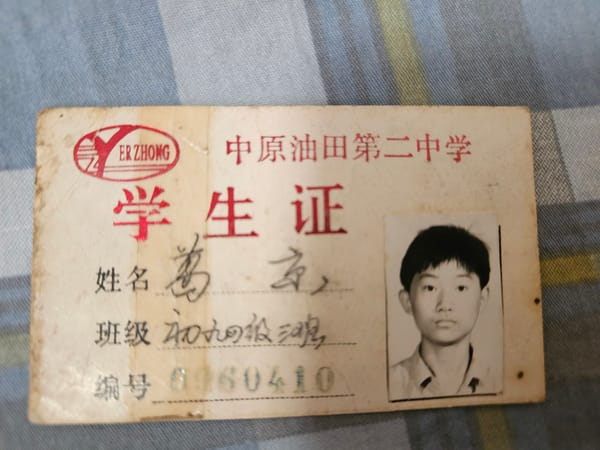 ERZHONG
中原油田第二中学
学生证
姓名 京
班级 初九四级三班
编号 0960410